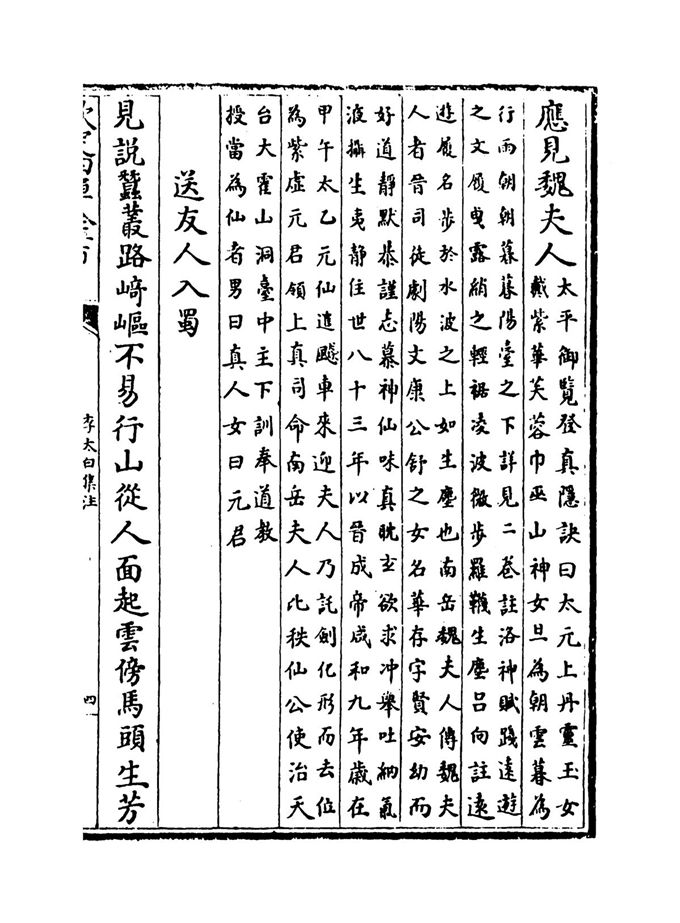 應見魏夫人
太平御覽登真隱訣曰太元上丹靈玉女
戴紫華芙蓉巾巫山神女旦為朝雲暮為
行雨朝朝暮暮陽臺之下詳見二卷註洛神賦踐遠遊
之文履曳露綃之輕裾凌波微步羅韈生塵吕向註遠
遊履名步於水波之上如生塵也南岳魏夫人傳魏夫
人者晉司徒劇陽文康公舒之女名華存字賢安幼而
好道靜默恭謹志慕神仙味真眈玄欲求冲舉吐納氣
液攝生夷静住世八十三年以晉成帝咸和九年歲在
甲午太乙元仙遣飈車來迎夫人乃託劍化形而去位
為紫虛元君領上真司命南岳夫人比秩仙公使治天
台大霍山洞臺中主下訓奉道教
授當為仙者男曰真人女曰元君
送友人入蜀
見說蠶叢路崎嶇不易行山從人面起雲傍馬頭生芳
李太白集注
四